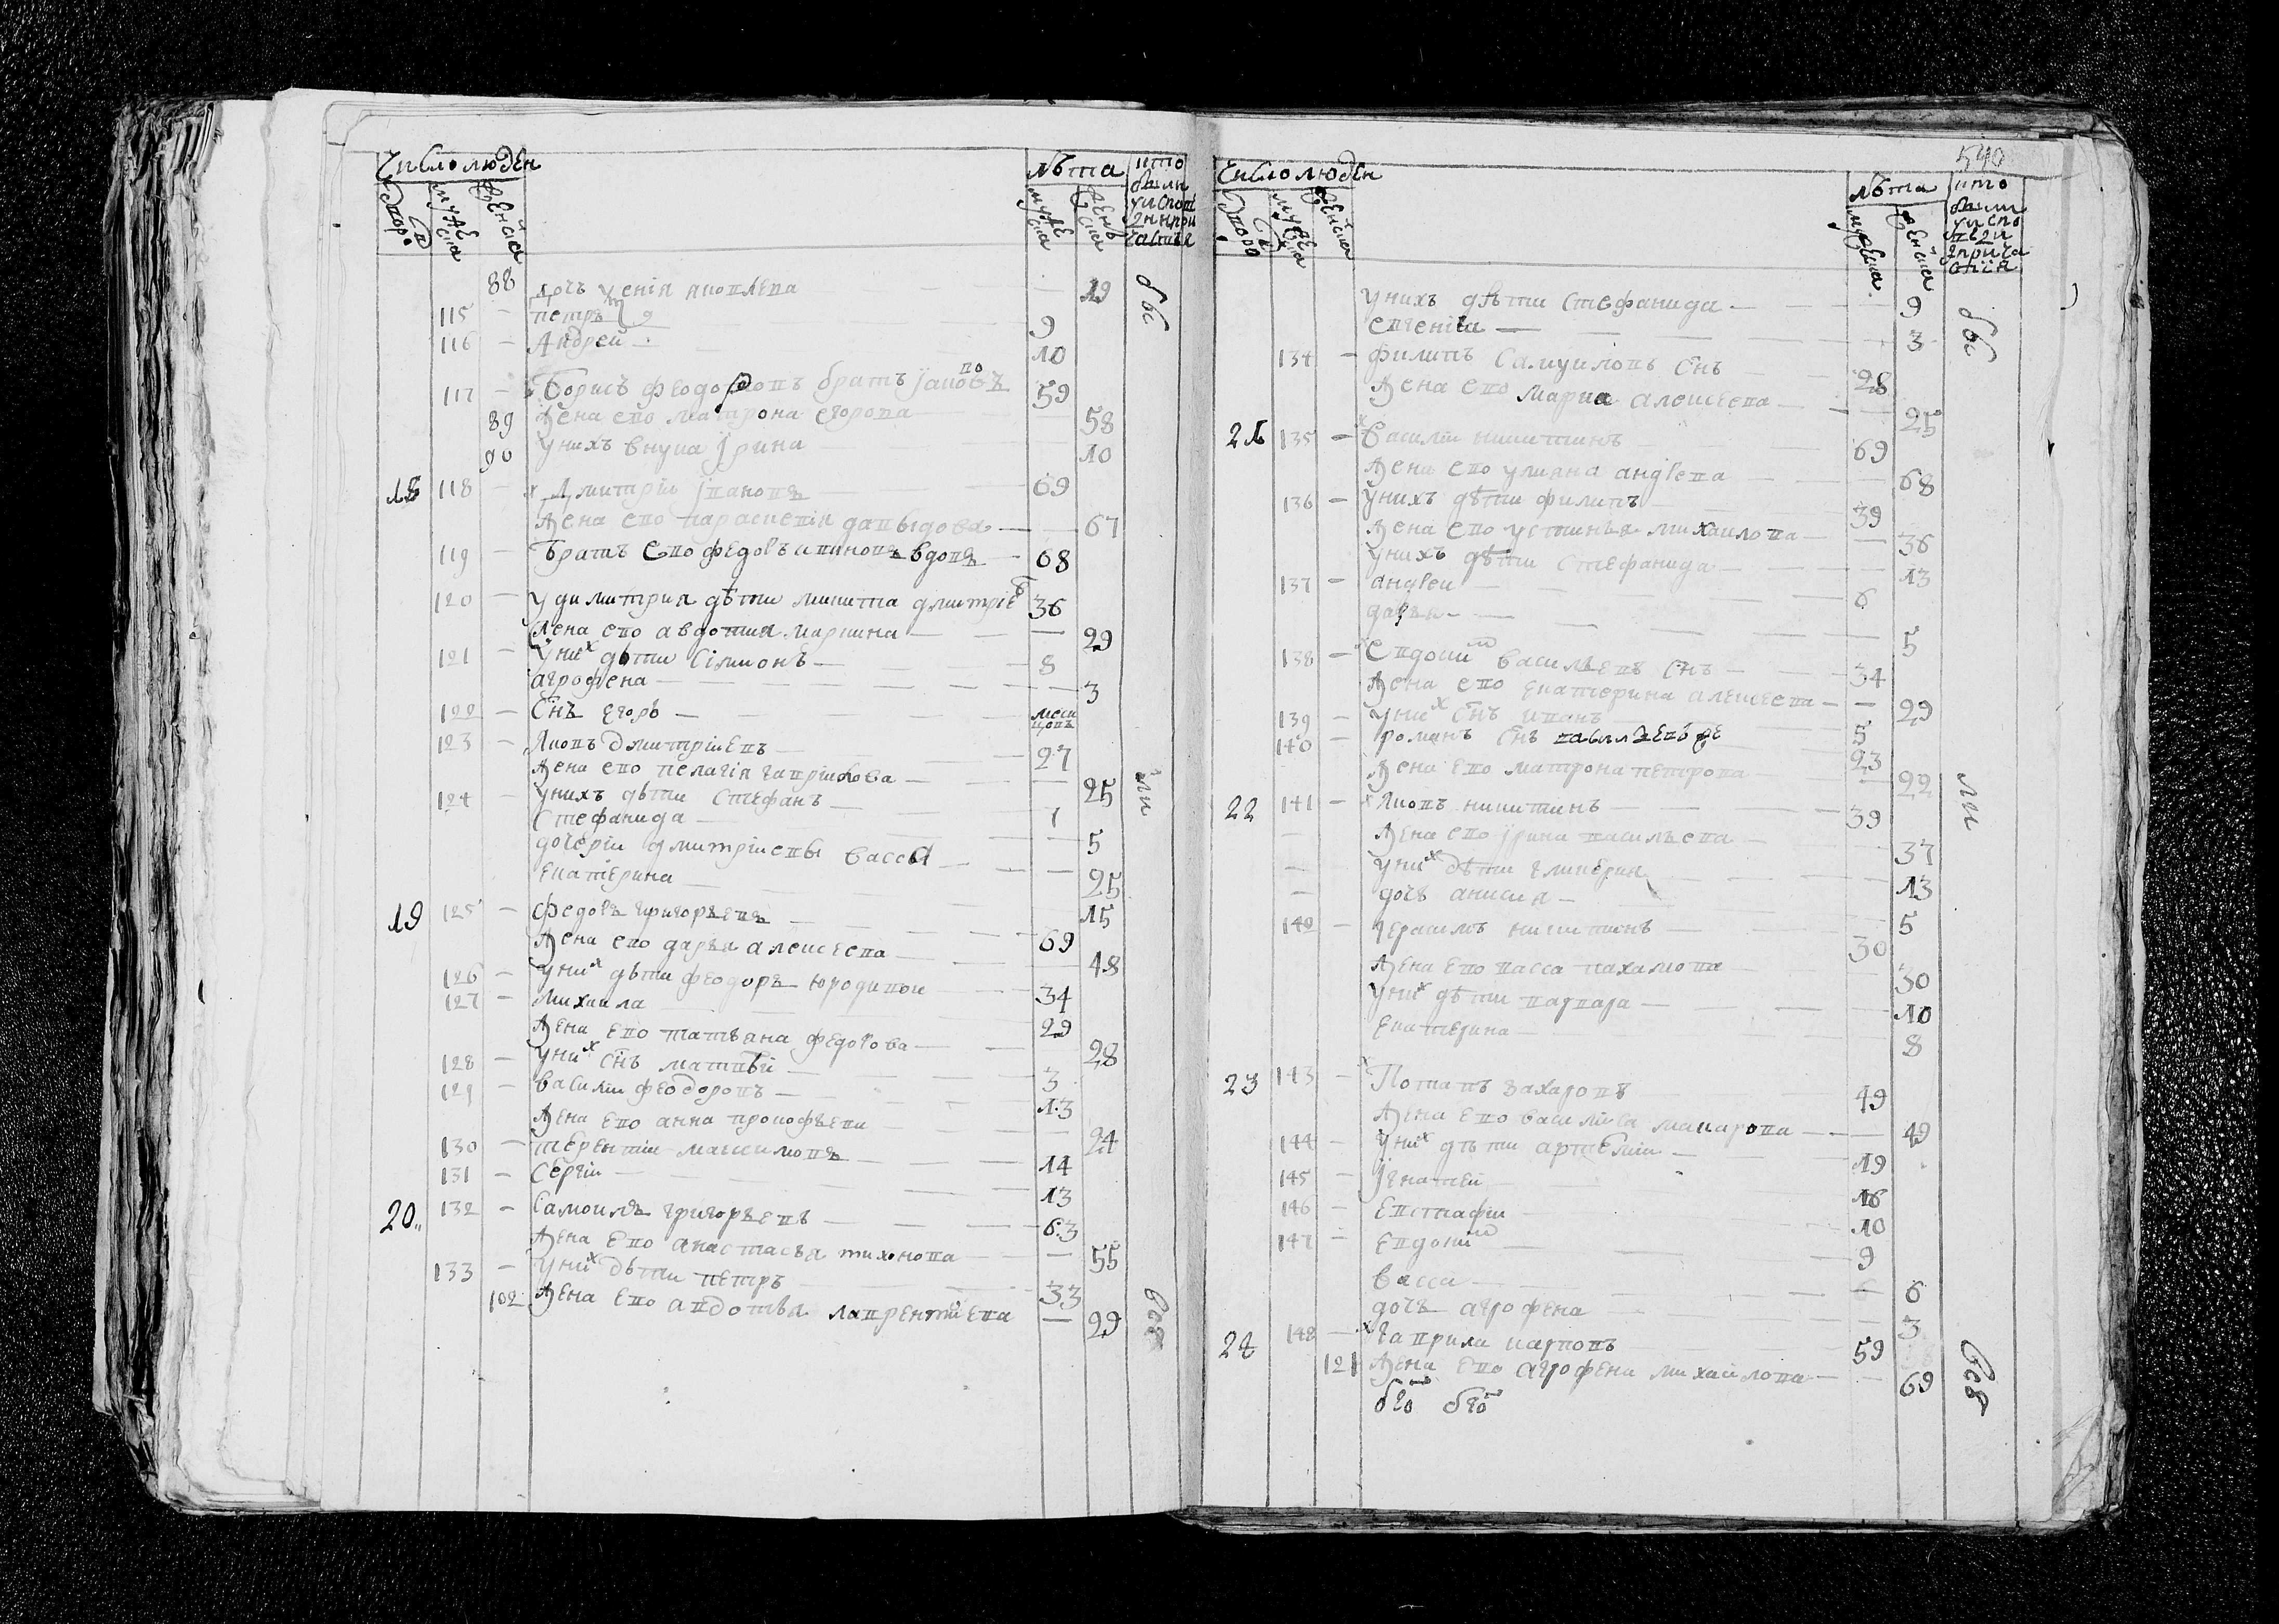 Число людей
лѣта
кто были у исповѣди и причастья
дворовъ
мужеска
женска
мужеска
женска
88 дочь ѯенiя яковлева — 19
115 петръ 9
116 Андрей 10
117 Борисъ Феодоровъ братъ Iаковъ 59
89 жена ево матрона егорова 58
90 у нихъ внука Iрина 10
18 118 Дмитрiй Iвановъ 69
жена ево параскевiя давыдова 67
119 братъ ево федоръ ивановъ вдовъ 68
120 у димитрия дѣти никита дмитрiевъ 36
жена ево авдотия маркина 29
121 у них дѣти Сiмионъ 8
агрофена 3
122 Снъ егоръ месицовъ
123 Яковъ дмитрiевъ 27
жена ево пелагiя гаврилова 25
124 у нихъ дѣти Стефанъ 1
Стефанида 5
дочерiи дмитрiевы васса 25
екатерина 15
19 125 федоръ григорьевъ 69
жена ево дарья алексеева 48
126 у них дѣти феодоръ юродивои 34
127 михаила 29
жена ево татьяна федорова 28
128 у них снъ матвѣй 3
129 василiи феодоровъ 13
жена ево анна прокофьева 24
130 терентiи максимовъ 14
131 Сергiи 13
20 132 Самоилъ григорьевъ 63
жена ево анастасья тихонова 55
133 у них дѣти петръ 33
102 жена ево авдотья лаврентiева 29
бы
ли
все
540
Число людей
лѣта
кто были у исповѣди и причастия
дворовъ
мужеска
женска
мужеска
женска
у нихъ дѣти Стефанида 9
евгениа 3
134 филипъ Самуиловъ Снъ 28
жена ево мариа алексеева 25
21 135 Василiи никитинъ 69
жена ево улияна андреева 68
136 у нихъ дѣти филипъ 39
жена ево устинья михаилова 36
у нихъ дѣти Стефанида 13
137 андреи 6
дарья 5
138 Евдоким васильевъ Снъ 34
жена ево екатерина алексеева 29
139 у них снъ иванъ 5
140 романъ снъ васильевъ же 23
жена ево матрона петрова 22
22 141 Яковъ никитинъ 39
жена ево iрина васильева 37
у них дѣти гликерия 13
дочь анисия 5
142 герасимъ никитинъ 30
жена ево васса пахамова 30
у них дѣти варвара 10
екатерина 8
23 143 Потапъ захаровъ 49
жена ево василиса макарова 49
144 у них дѣти артемiи 19
145 Iгнатеи 16
146 Евстафiи 10
147 евдоким 9
Васса 6
дочь агрофена 3
24 148 гаврила карповъ 59
121 жена ево агрофена михайлова 69
бы
ли
все